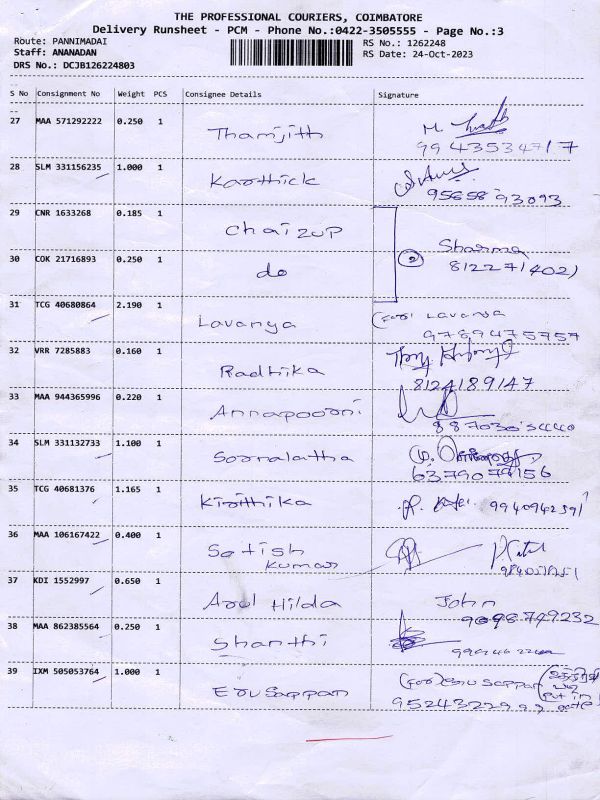 THE PROFESSIONAL COURIERS, COIMBATORE
Delivery Runsheet - PCM - Phone No.:0422-3505555 - Page No.:3
Route: PANNIMADAI
RS No.: 1262248
Staff: ANANADAN
RS Date: 24-Oct-2023
DRS No.: DCJB126224803
S No Consignment No Weight PCS Consignee Details Signature
27 MAA 571292222 0.250 1 Thamjith
M.
9943534717
28 SLM 331156235 1.000 1 Karthick
9565893093
29 CNR 1633268 0.185 1 Chaizup
30 COK 21716893 0.250 1 do
2 Sharma
8122714021
31 TCG 40680864 2.190 1 Lavanya
(for) Lavanya
9789475757
32 VRR 7285883 0.160 1 Radhika
8124189147
33 MAA 944365996 0.220 1 Annapoorni
34 SLM 331132733 1.100 1 Sornalatha
6379079156
35 TCG 40681376 1.165 1 Kirithika
9940942391
36 MAA 106167422 0.400 1 Satish
Kumar
37 KDI 1552997 0.650 1 Arul Hilda
John
9098749232
38 MAA 862385564 0.250 1 Shanthi
39 IXM 505053764 1.000 1 Erusappan
(for) Erusappan